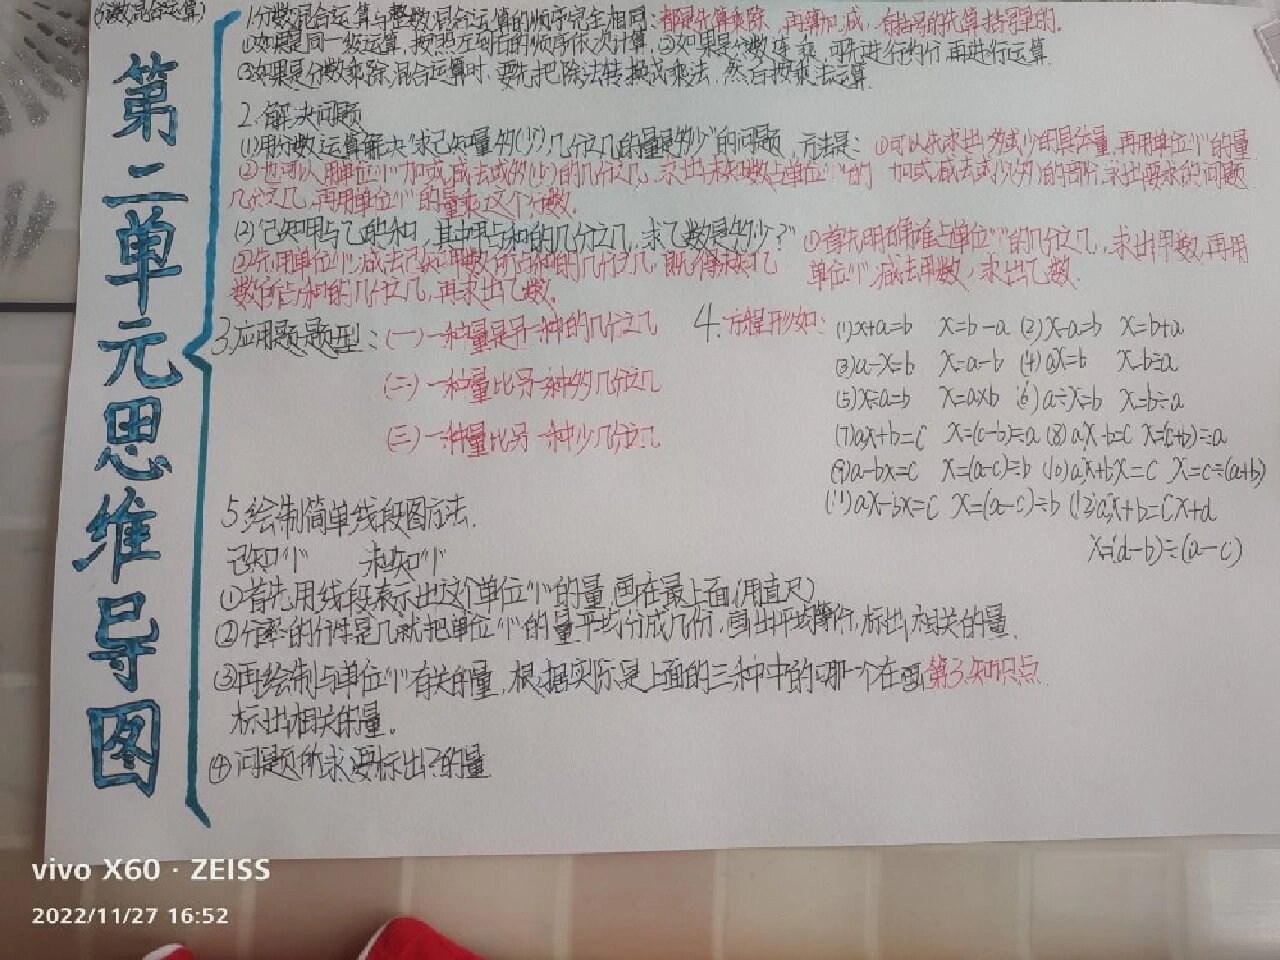 (分数混合运算)
第二单元思维导图
1.分数混合运算与整数混合运算的顺序完全相同:都是先算乘除,再算加减,有括号的先算括号里的。
①如果是同一级运算,按照左到右的顺序依次计算,②如果是分数连乘,可先进行约分再进行运算
③如果是分数乘除混合运算时,要先把除法转换成乘法,然后按乘法运算.
2.解决问题
(1)用分数运算解决“求已知量多(少)几分之几的量是多少”的问题,方法是:①可以先求出多或少的具体量,再用单位“1”的量
②也可以用单位“1”加或减去或多(少)的几分之几,求出未知数占单位“1”的 加或减去或少(多)的部分,求出要求的问题
几分之几,再用单位“1”的量乘这个分数.
(2)“已知甲与乙的和,其中甲占和的几分之几,求乙数是多少?”①首先明确谁占单位“1”的几分之几,求出甲数,再用
②先用单位“1”减去已知甲数所占和的几分之几,即得 单位“1”减去甲数,求出乙数.
数所占和的几分之几,再求出乙数.
3.应用题题型:(一)一种量是另一种的几分之几
(二)一种量比另一种多几分之几
(三)一种量比另一种少几分之几
4.方程形如:(1)x+a=b X=b-a (2)X-a=b X=b+a
(3)a-X=b X=a-b (4)aX=b X=b÷a
(5)X÷a=b X=a×b (6)a÷X=b X=b÷a
(7)aX+b=C X=(c-b)÷a (8)aX-b=C X=(C+b)÷a
(9)a-bX=C X=(a-c)÷b (10)aX+bX=C X=C÷(a+b)
(11)aX-bX=C X=(a-c)÷b (12)aX+b=CX+d
X=(d-b)÷(a-c)
5.绘制简单线段图方法.
已知“1” 未知“1”
①首先用线段表示出这个单位“1”的量,画在最上面(用直尺)
②分率的分母是几就把单位“1”的量平均分成几份,画出平均等份,标出相关的量.
③再绘制与单位“1”有关的量,根据实际是上面的三种中的哪一个在画第3知识点
标出相关的量。
④问题所求要标出?的量